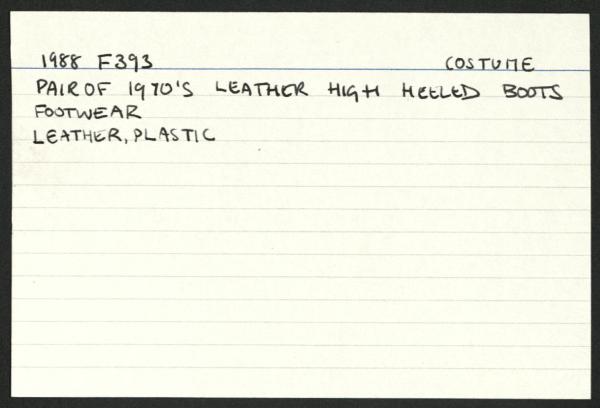 1988 F393 COSTUME
PAIR OF 1970'S LEATHER HIGH HEELED BOOTS
FOOTWEAR
LEATHER, PLASTIC